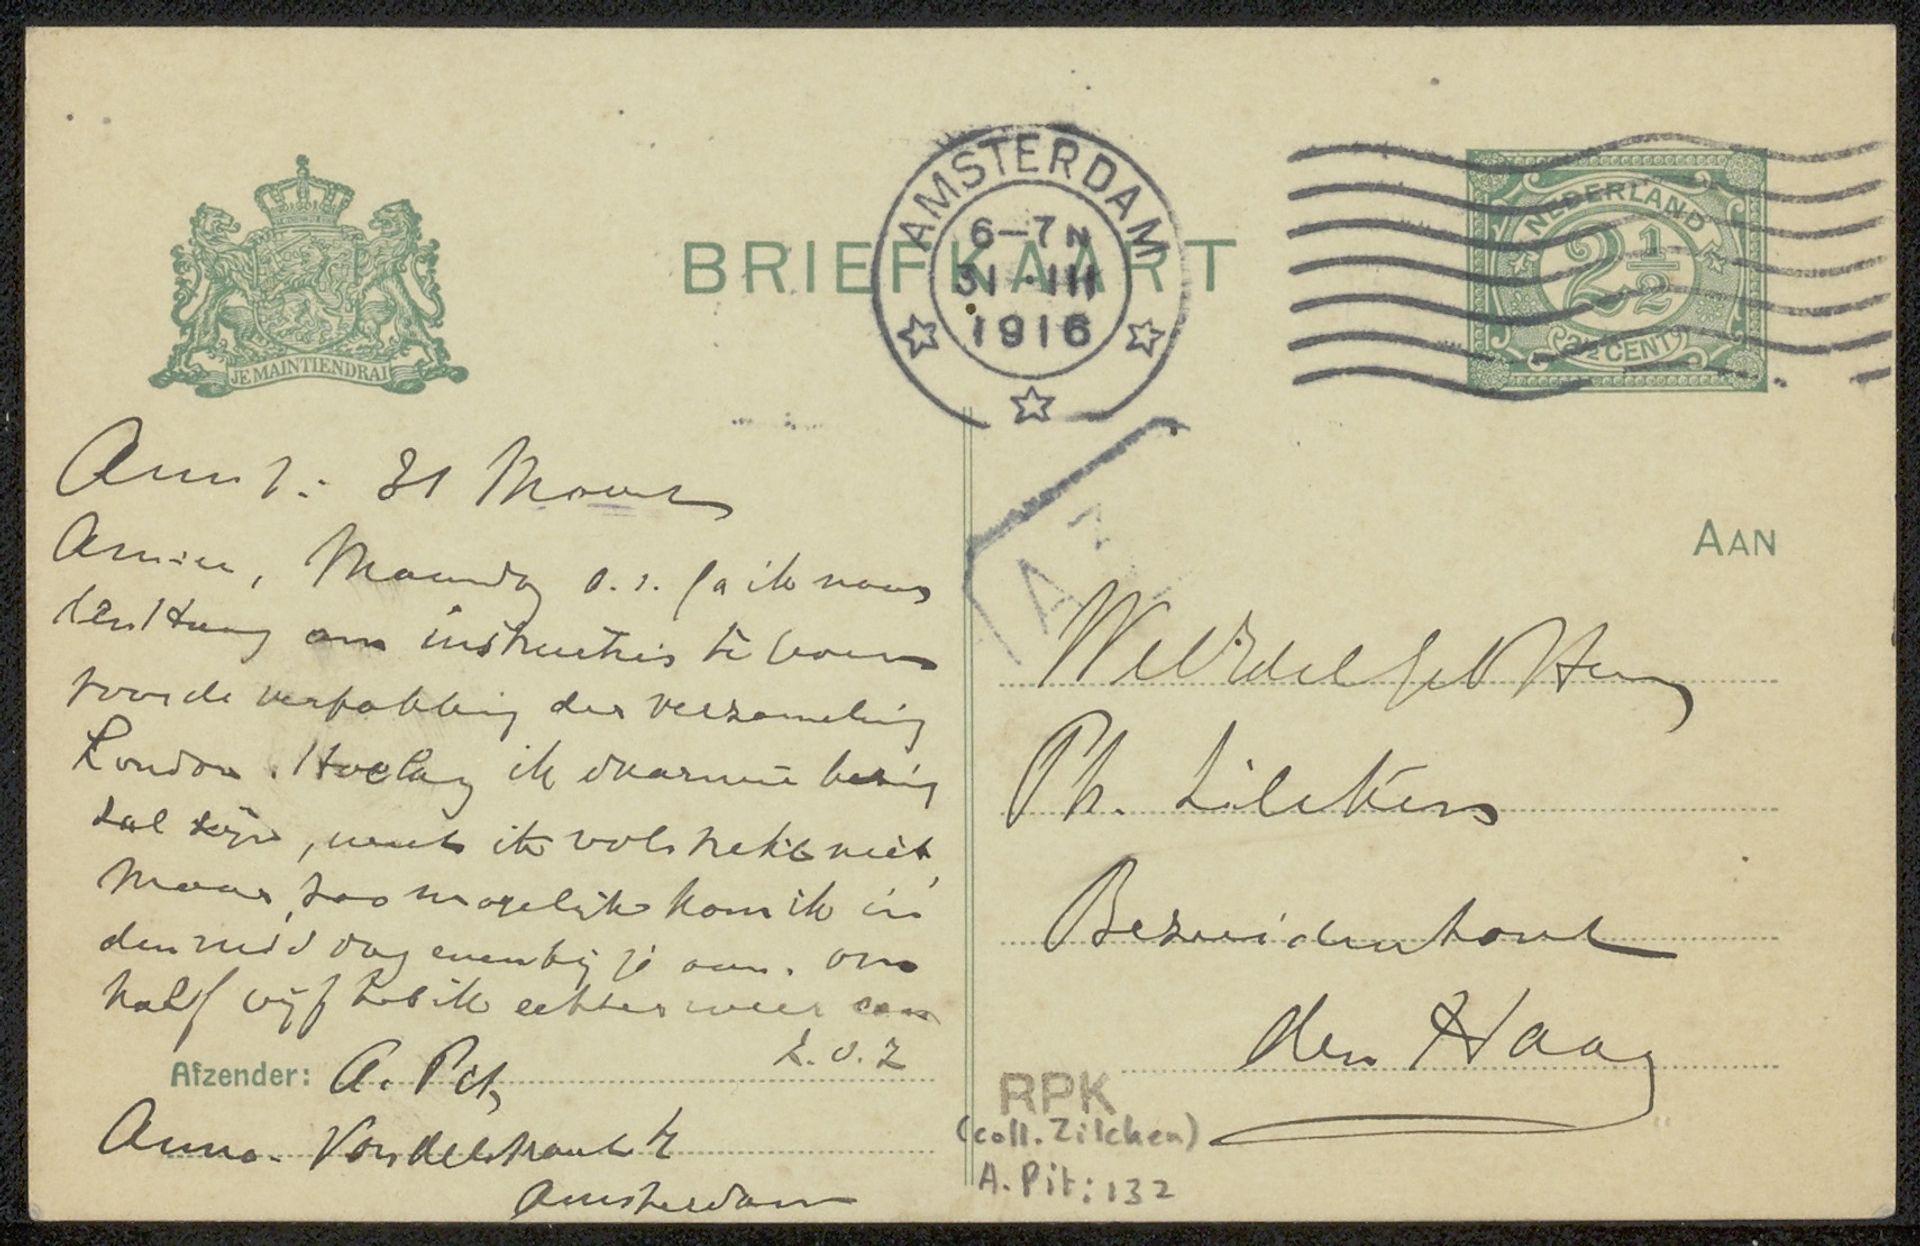 JE MAINTIENDRAI
BRIEFKAART
AMSTERDAM
6-7N
31 ·III
1916
NEDERLAND
2 1/2
2½ CENT
Amst: 31 Maart
Amice, Maandag a.s. ga ik naar
den Haag om instructies te
voor de verpakking der verzameling
London. Hoelang ik daarmee bezig
zal zijn, weet ik volstrekt niet,
Maar, zoo mogelijk kom ik in
den middag even bij je aan. om
half vijf heb ik echter weer een
Afzender: A. Pit,
Anna-Vondelstraat
Amsterdam
AAN
WelEdelGeb Heer
Ph. Zilcken
Bezuidenhout
den Haag
RPK
(coll. Zilcken)
A. Pit: 132